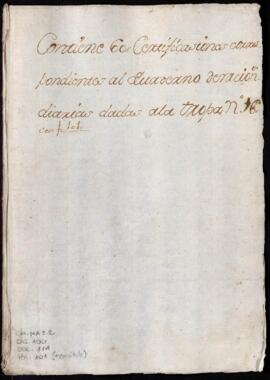 Contiene 60 Certificaciones corres
pondientes al Quaderno de racion.
diarias dadas a la tropa N.º 16
con f. 101.
DOC. 111